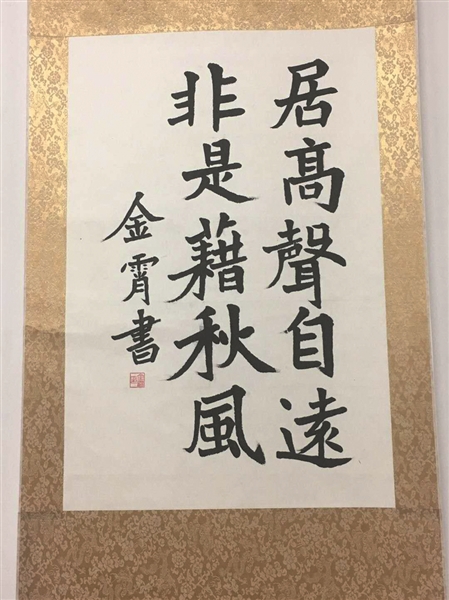 居髙聲自遠
非是藉秋風
金霄書